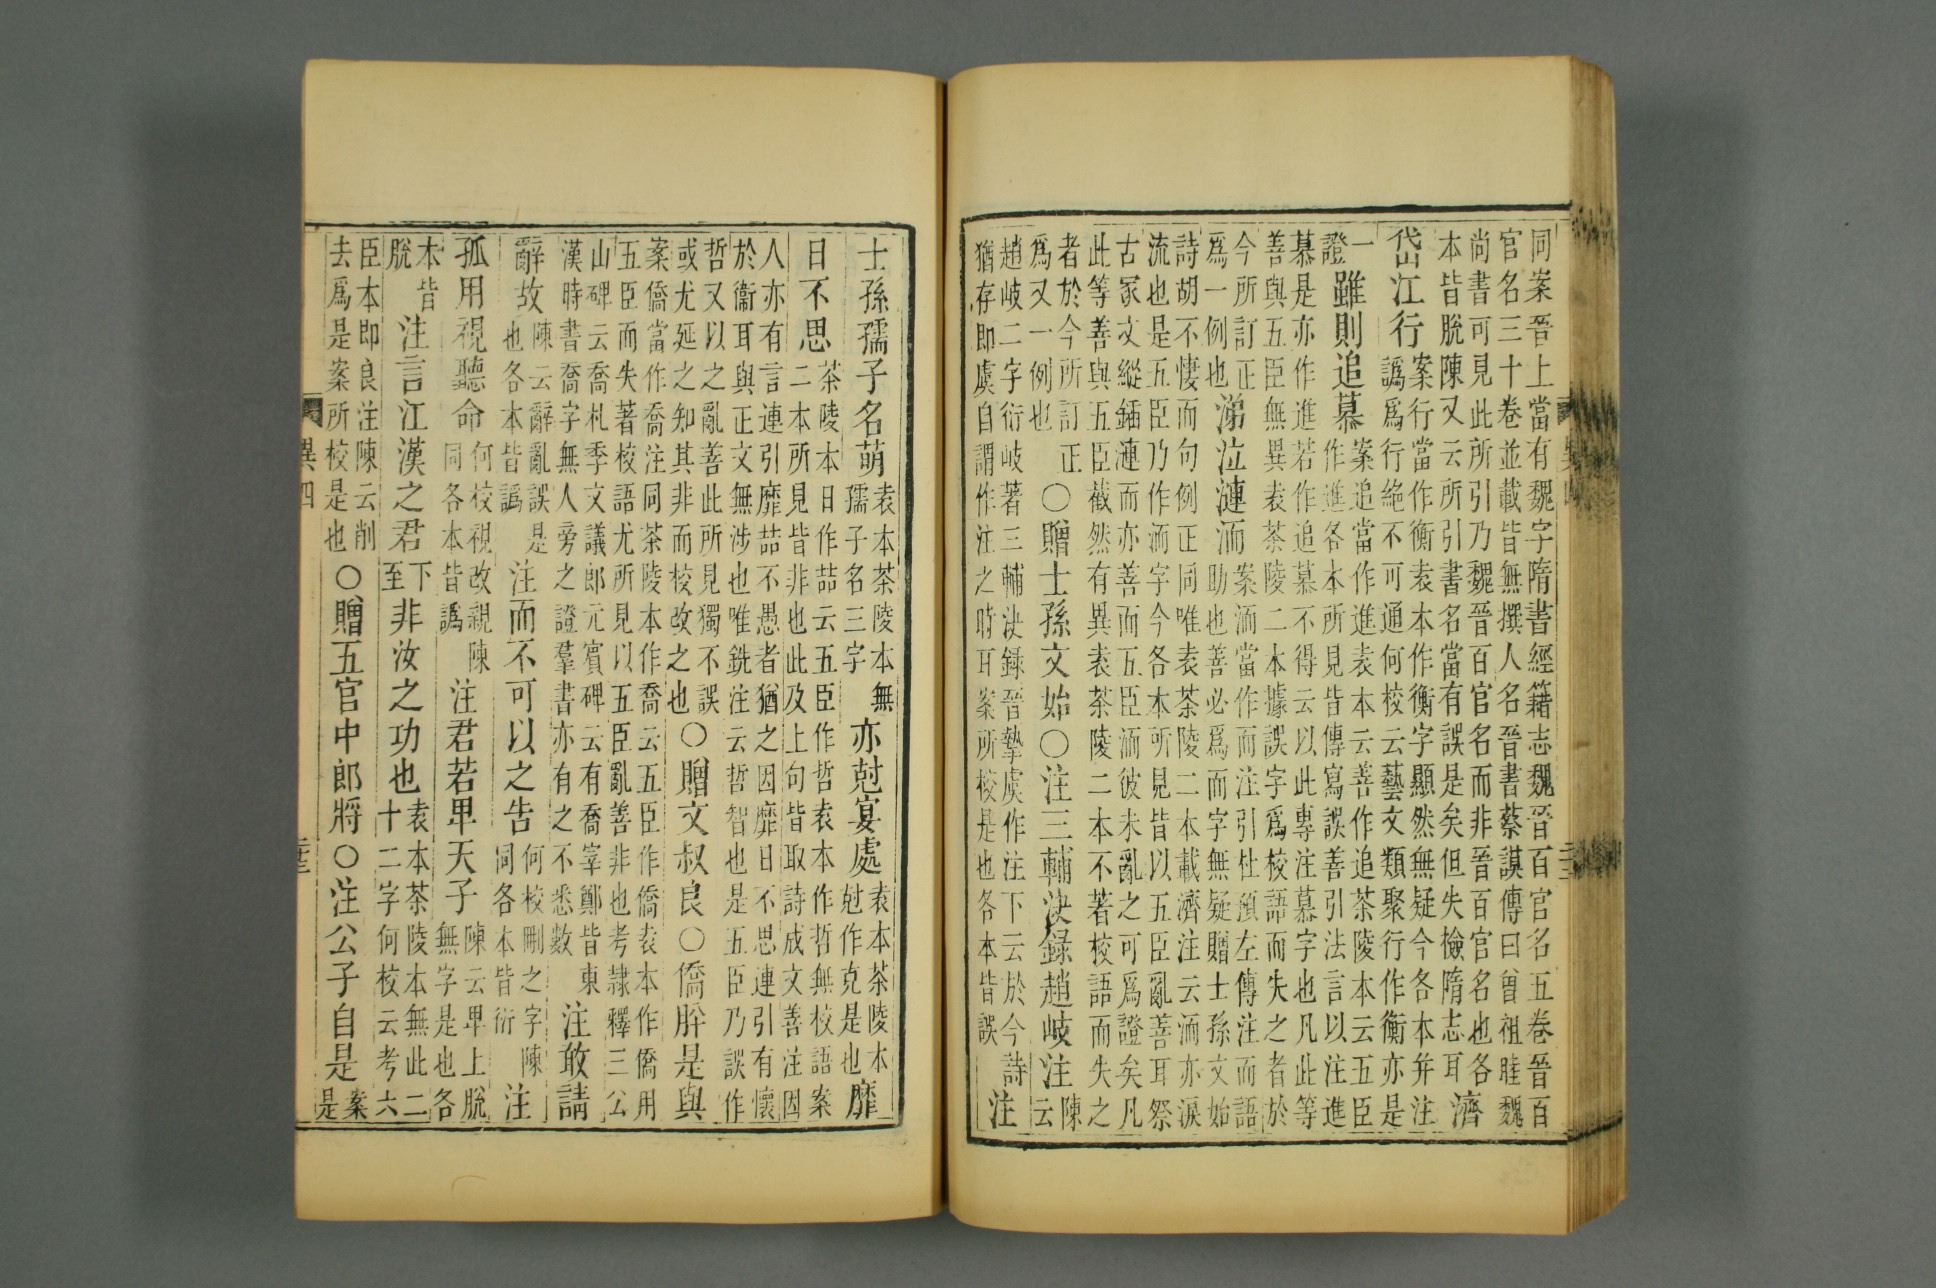 同案晉上當有魏字隋書經籍志魏晉百官名五卷晉百
官名三十卷並載皆無撰人名晉書蔡謨傳曰曾祖睦魏
尚書可見此所引乃魏晉百官名而非晉百官名也各
本皆脫陳又云所引書名當有誤是矣但失檢隋志耳 濟
岱江行 案行當作衡袁本作衡字顯然無疑今各本并注
譌爲行絕不可通何校云藝文類聚行作衡亦是
一證 雖則追慕 案追當作進袁本云善作追茶陵本云五臣
作進各本所見皆傳寫誤善引法言以注進
慕是亦作進若作追慕不得云以此專注慕字也凡此等
善與五臣無異袁茶陵二本據誤字爲校語而失之者於
今所訂正
爲一例也 涕泣漣洏 案洏當作而注引杜預左傳注而語
助也善必爲而字無疑贈士孫文始
詩胡不悽而句例正同唯袁茶陵二本載濟注云洏亦淚
流也是五臣乃作洏字今各本所見皆以五臣亂善耳祭
古冢文縱鍤漣而亦善而五臣洏彼未亂之可爲證矣凡
此等善與五臣截然有異袁茶陵二本不著校語而失之
者於今所訂正
爲又一例也 〇贈士孫文始〇注三輔決錄趙岐注 陳云
趙岐二字衍岐著三輔決錄晉摯虞作注下云於今詩
猶存即虞自謂作注之時耳案所校是也各本皆誤 注
士孫孺子名萌 袁本茶陵本無孺子名三字 亦尅宴處 袁本茶陵本尅作克是也 靡
日不思 茶陵本日作喆云五臣作哲袁本作哲無校語案
二本所見皆非也此及上句皆取詩成文善注因
人亦有言連引靡喆不愚者猶之因靡日不思連引有懷
於衞耳與正文無涉也唯銑注云哲智也是五臣乃誤作
哲又以之亂善此所見獨不誤
或尤延之知其非而校改之也 〇贈文叔良〇僑肸是與
案僑當作喬注同茶陵本作喬云五臣作僑袁本作僑用
五臣而失著校語尤所見以五臣亂善非也考隸釋三公
山碑云喬札季文議郎元賓碑云有喬宰鄭皆東
漢時書喬字無人旁之證羣書亦有之不悉數 注敢請
辭故 陳云辭亂誤是也各本皆譌 注而不可以之告 何校刪之字陳同各本皆衍 注
孤用視聽命 何校視改親陳同各本皆譌 注君若卑天子 陳云卑上脫無字是也各
本皆脫 注言江漢之君 下至 非汝之功也 袁本茶陵本無此二十二字何校云考六
臣本即良注陳云削去爲是案所校是也 〇贈五官中郎將〇注公子自是 案是
異四